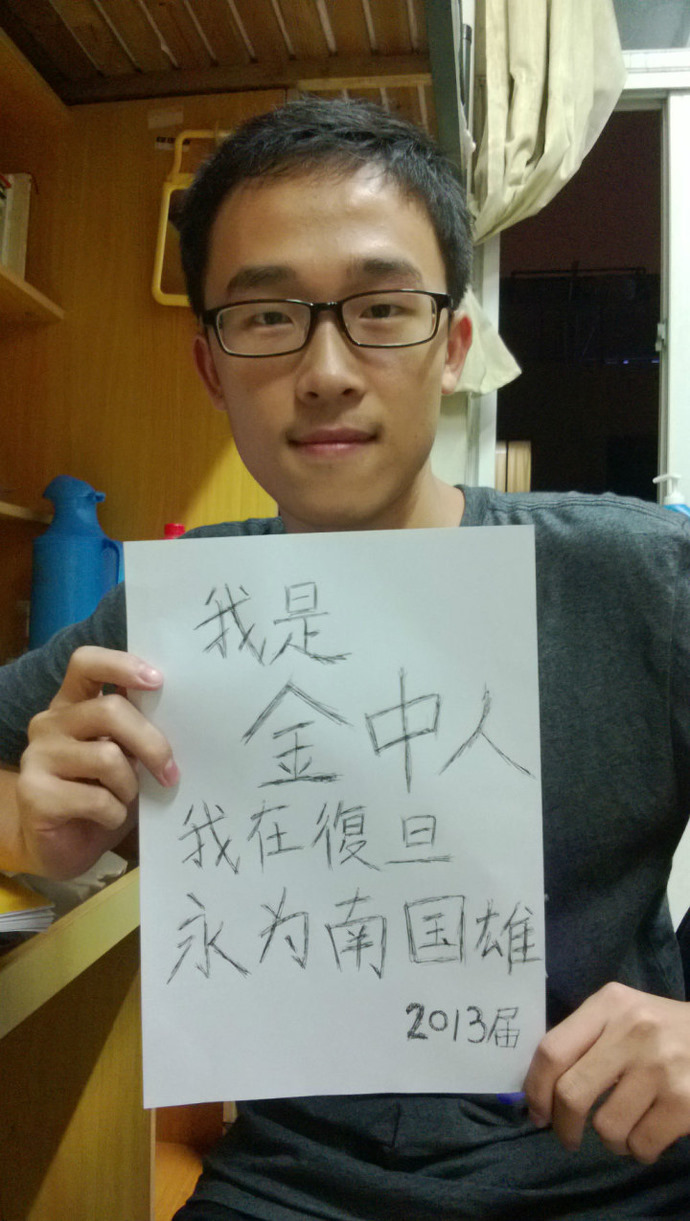 我是
金中人
我在復旦
永为南国雄
2013届